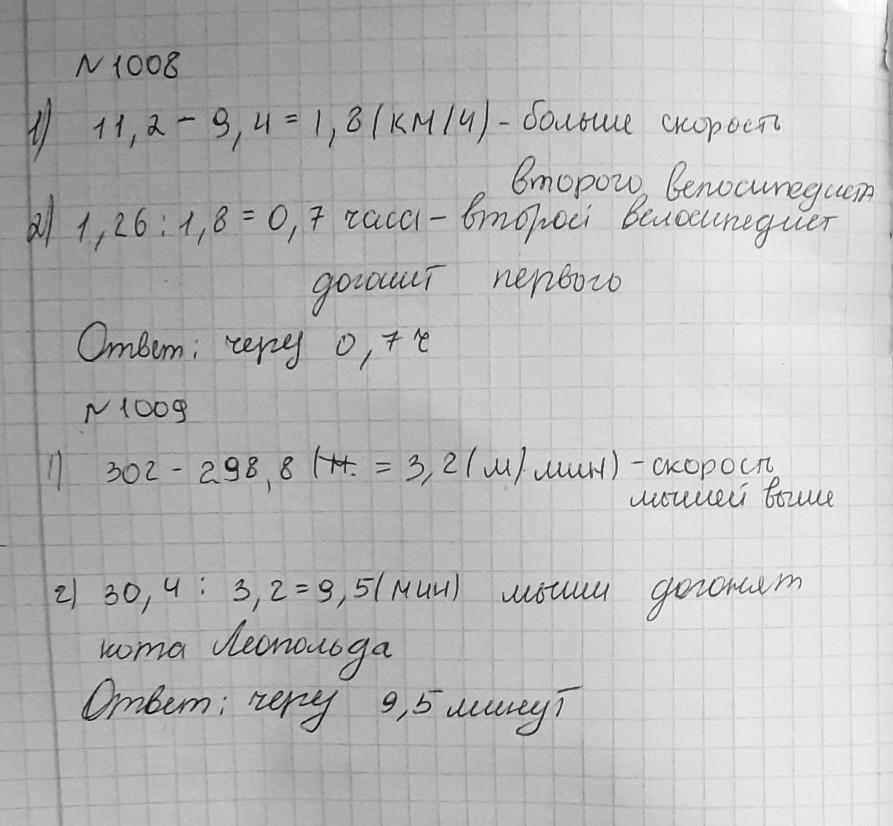 N 1008
1) 11,2 - 9,4 = 1,8 (км/ч) - больше скорость
второго велосипедиста
2) 1,26 : 1,8 = 0,7 часа - второй велосипедист
догонит первого
Ответ: через 0,7 ч
N 1009
1) 302 - 298,8 = 3,2 (м/мин) - скорость
мышей выше
2) 30,4 : 3,2 = 9,5 (мин) мыши догонят
кота Леопольда
Ответ: через 9,5 минут